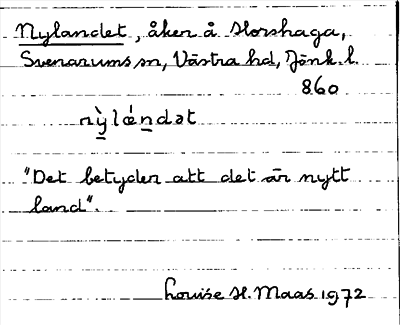 Nylandet, åker å Horshaga,
Svenarums sn, Västra hd, Jönk. l.
860
nỳ̠lǽn̠dət
"Det betyder att det är nytt
land".
Louise H. Maas 1972